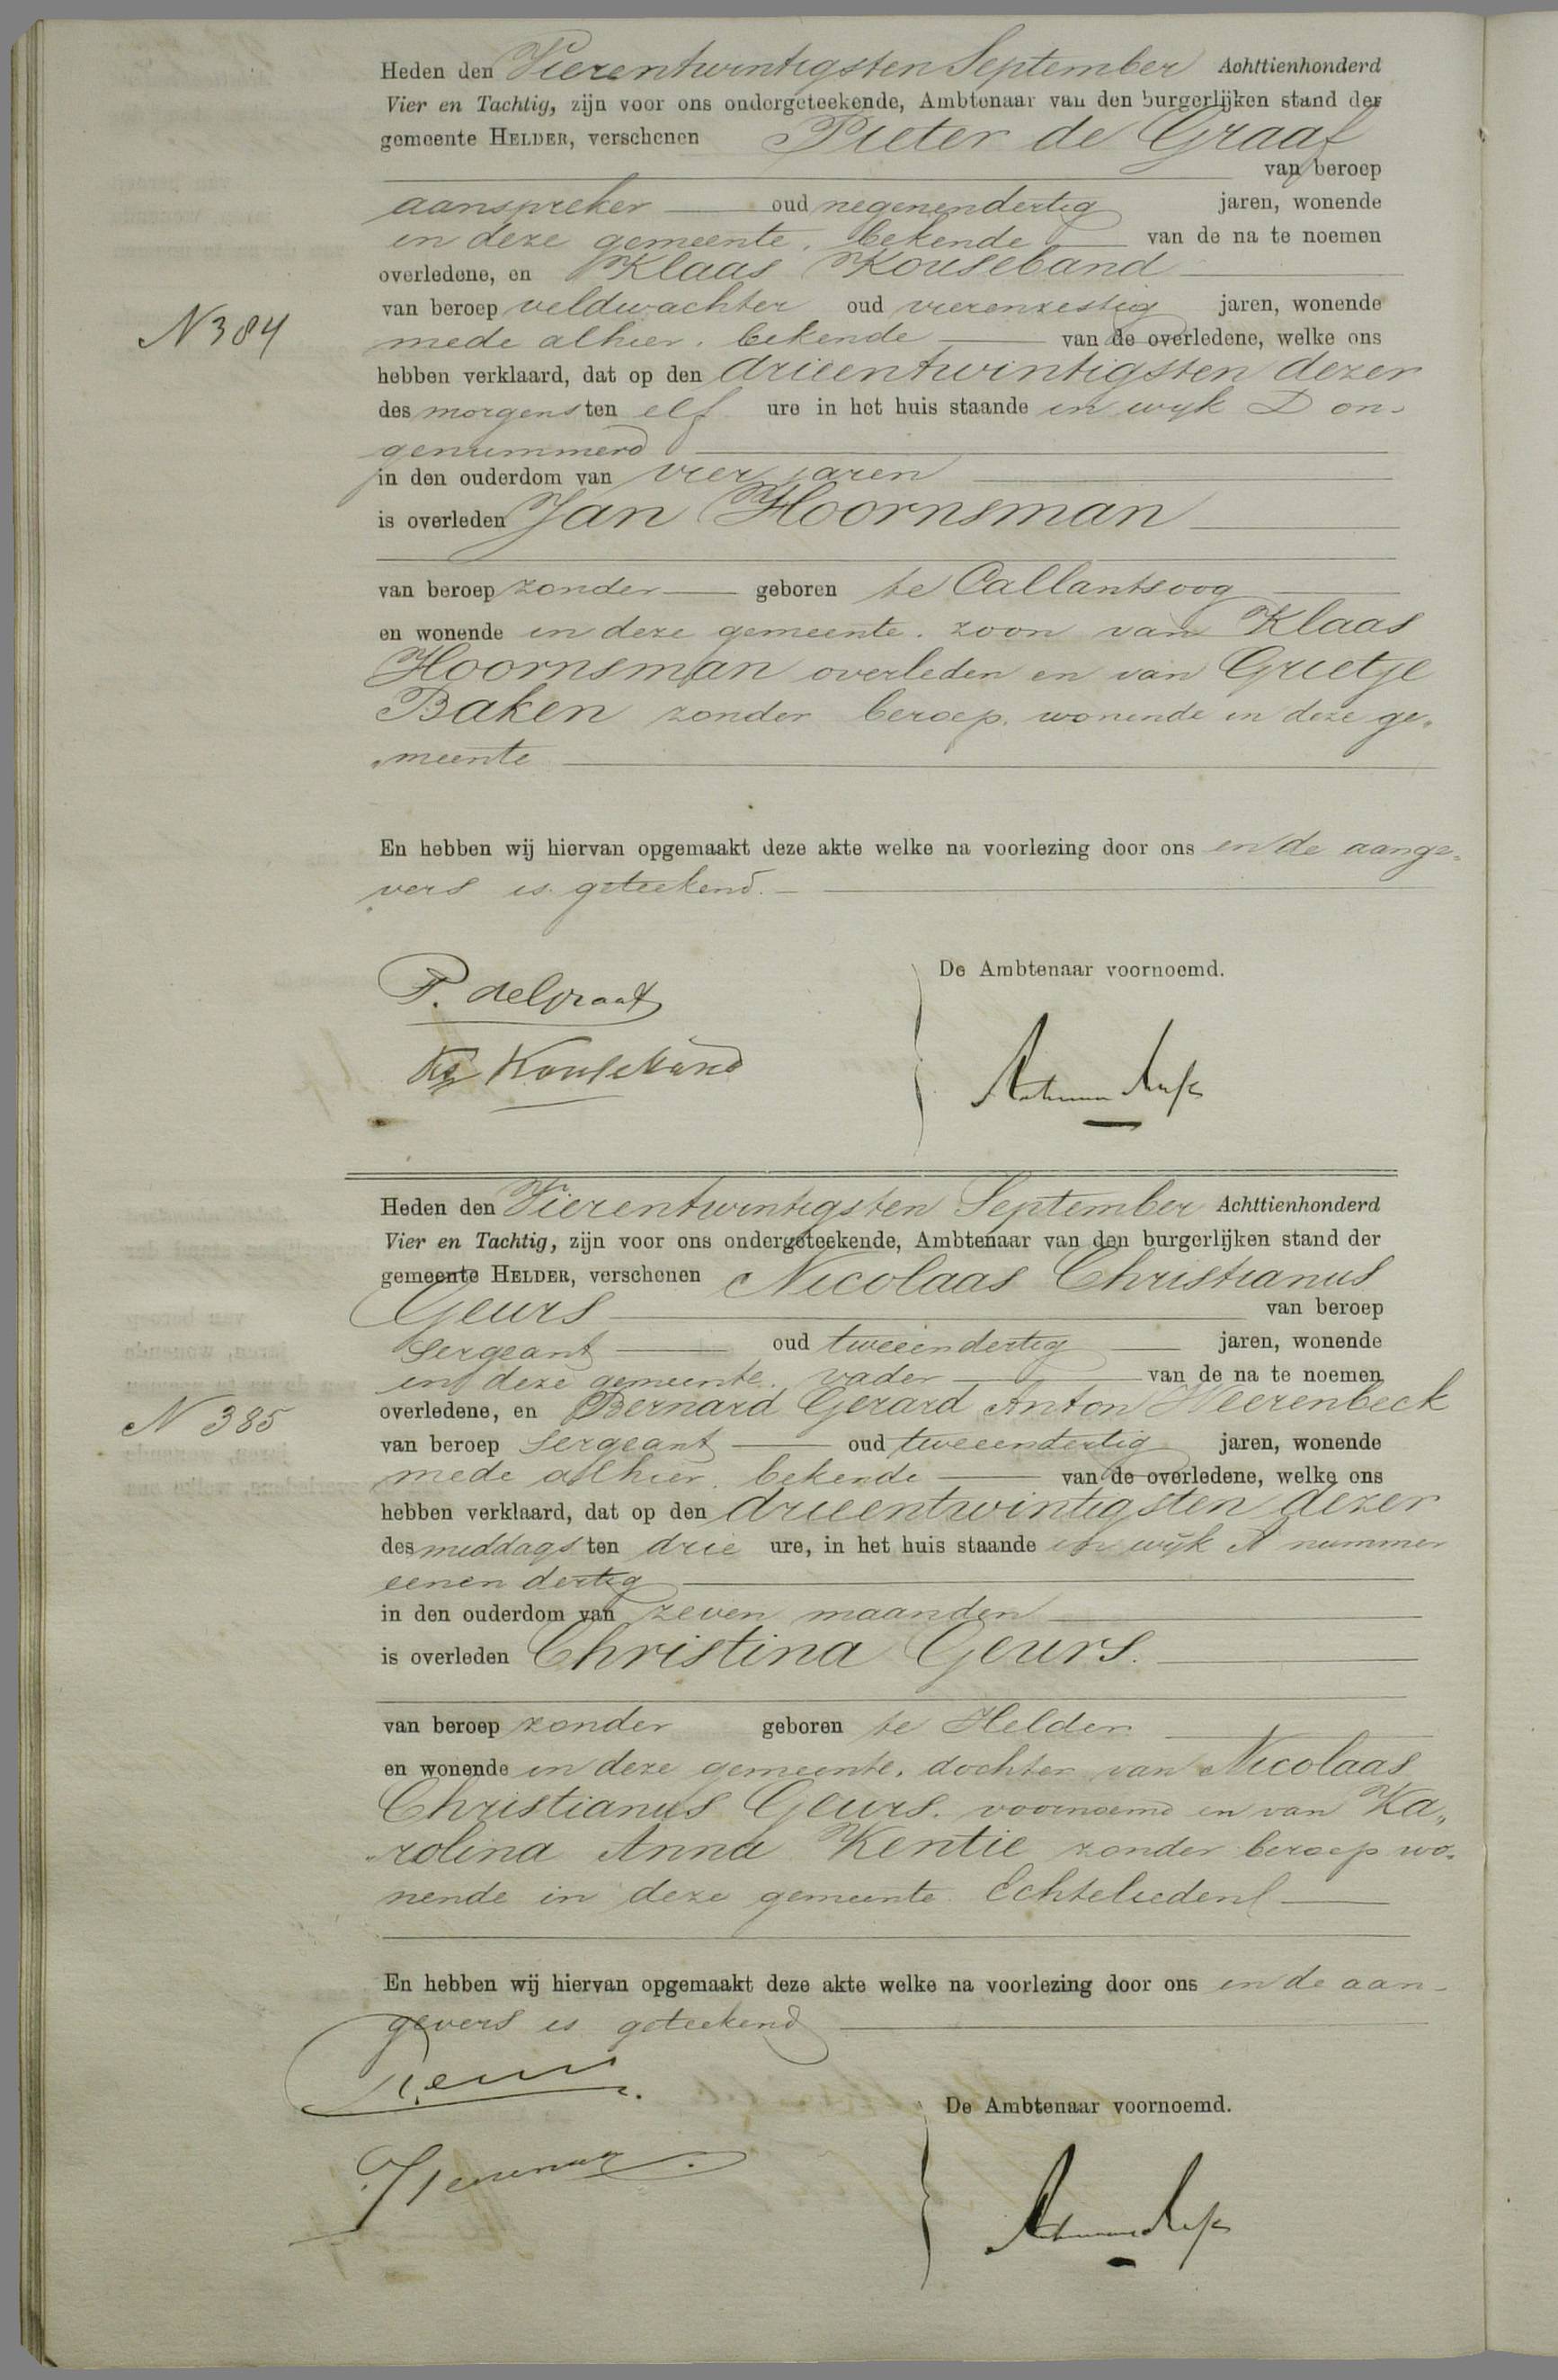 Heden den Vierentwintigsten September Achttienhonderd
Vier en Tachtig, zijn voor ons ondergeteekende, Ambtenaar van den burgerlijken stand der
gemeente HELDER, verschenen Pieter de Graaf
van beroep
aanspreker oud negenendertig jaren, wonende
in deze gemeente, bekende van de na te noemen
overledene, en Klaas Kouseband
van beroep veldwachter oud vierenzestig jaren, wonende
N 384
mede alhier, bekende van de overledene, welke ons
hebben verklaard, dat op den drieentwintigsten dezer
des morgens ten elf ure in het huis staande in wyk D on-
genummerd
in den ouderdom van vier jaren
is overleden Jan Hoornsman
van beroep zonder geboren te Callantsoog
en wonende in deze gemeente, zoon van Klaas
Hoornsman overleden en van Grietje
Baken zonder beroep, wonende in deze ge„
„meente
En hebben wij hiervan opgemaakt deze akte welke na voorlezing door ons en de aange„
vers is geteekend.
De Ambtenaar voornoemd.
P. de Graaf
Ks Kouseband
Heden den Vierentwintigsten September Achttienhonderd
Vier en Tachtig, zijn voor ons ondergeteekende, Ambtenaar van den burgerlijken stand der
gemeente HELDER, verschenen Nicolaas Christianus
Geurs van beroep
Sergeant oud tweeendertig jaren, wonende
in deze gemeente, vader van de na te noemen
overledene, en Bernard Gerard Anton Heerenbeek
N 385
van beroep Sergeant oud tweeendertig jaren, wonende
mede alhier, bekende van de overledene, welke ons
hebben verklaard, dat op den drieentwintigsten dezer
des middags ten drie ure, in het huis staande in wijk A nummer
eenendertig
in den ouderdom van zeven maanden
is overleden Christina Geurs.
van beroep zonder geboren te Helder
en wonende in deze gemeente, dochter van Nicolaas
Christianus Geurs, voornoemd en van Ka„
„rolina Anna Kentie zonder beroep wo„
nende in deze gemeente Echtelieden
En hebben wij hiervan opgemaakt deze akte welke na voorlezing door ons en de aan-
gevers is geteekend
De Ambtenaar voornoemd.